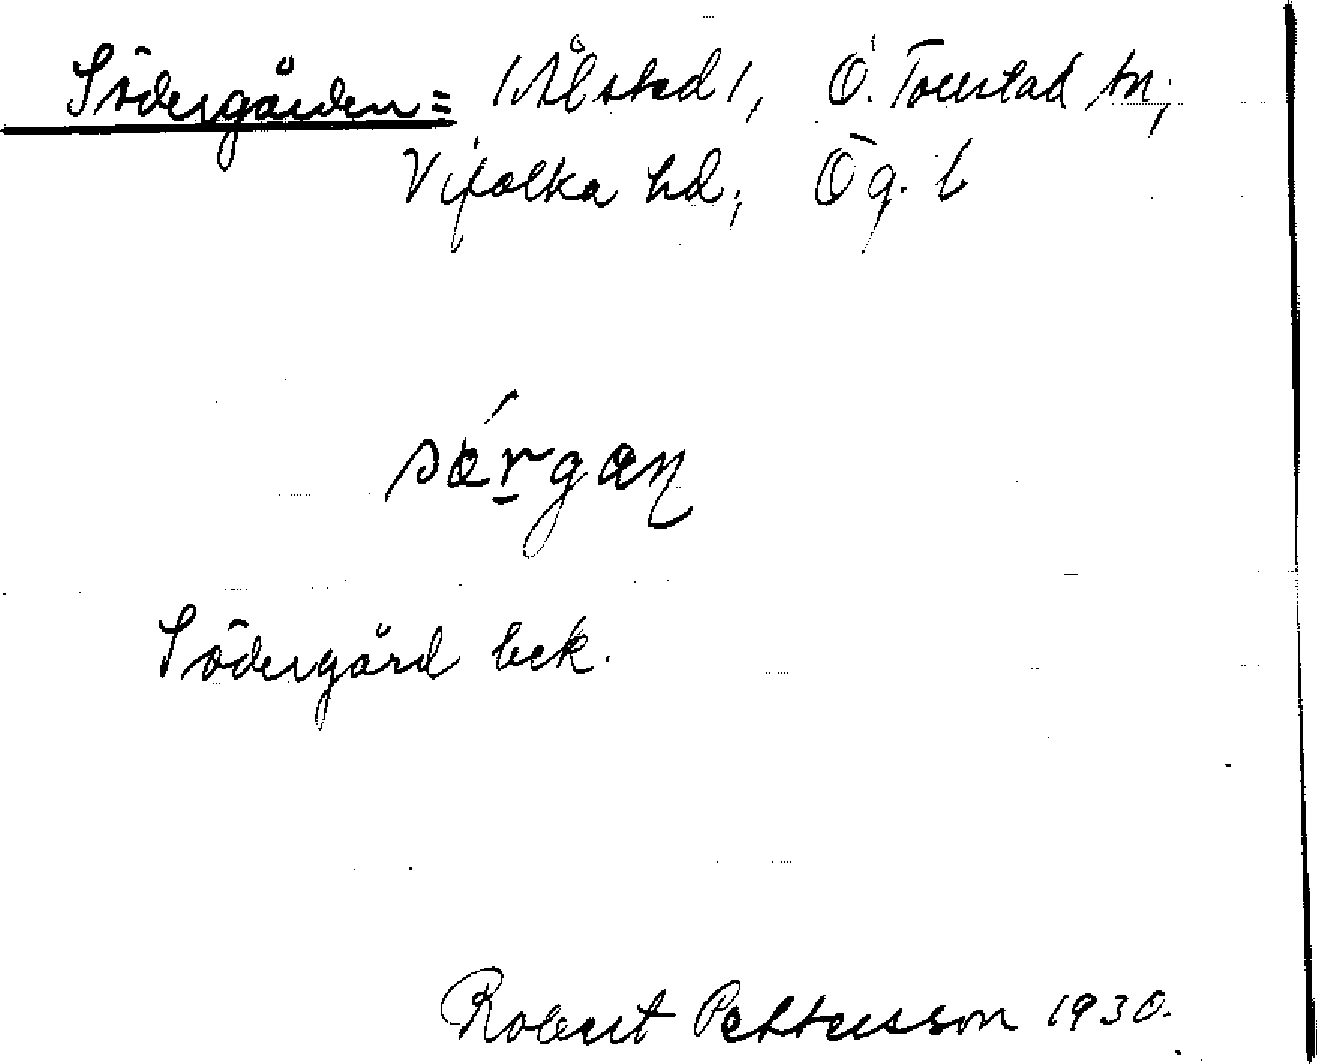 Södergården = /Ålstad/, Ö. Tollstad sn;
Vifolka hd; Ög. l
sørgan
Södergård bek.
Robert Pettersson 1930.